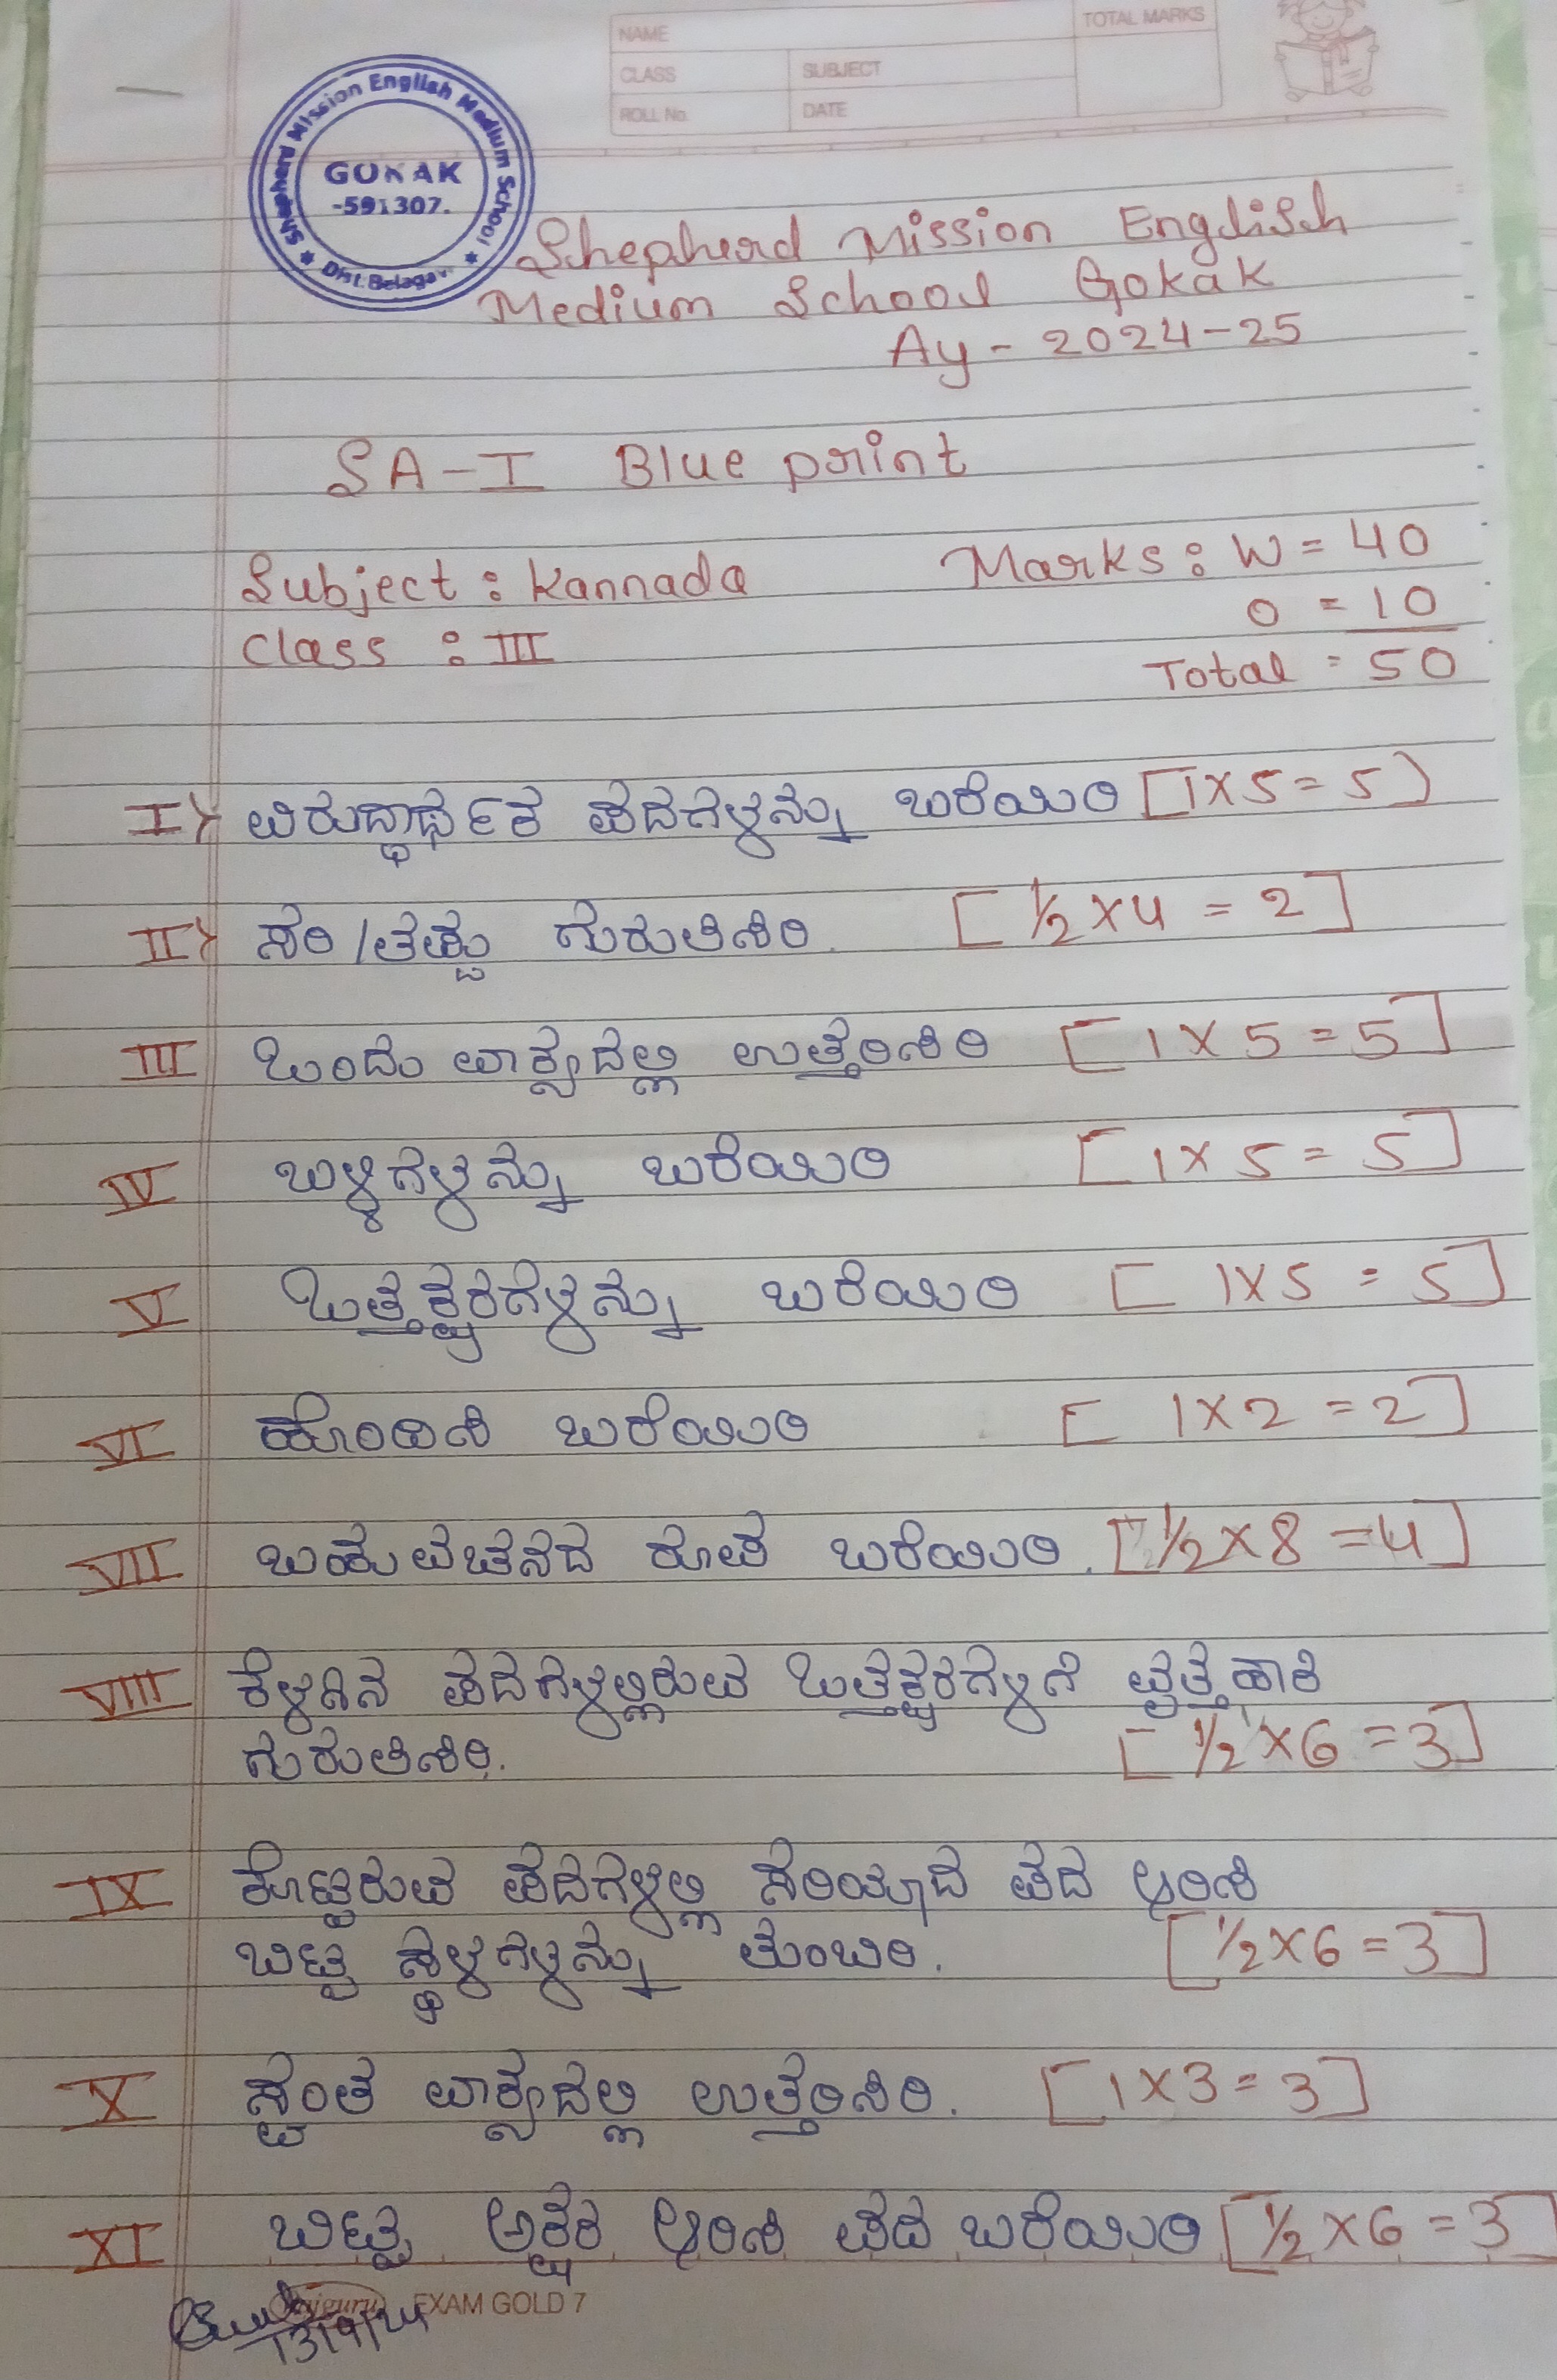 NAME
TOTAL MARKS
CLASS
SUBJECT
ROLL No.
DATE
Shepherd Mission English Medium School
GOKAK
-591307.
Dist. Belagavi
Shepherd Mission English
Medium School Gokak
Ay - 2024-25
SA-I Blue print
Subject : Kannada Marks : W = 40
0 = 10
Class : III
Total = 50
I> ವಿರುದ್ಧಾರ್ಥಕ ಪದಗಳನ್ನು ಬರೆಯಿರಿ [1×5=5]
II> ಸರಿ/ತಪ್ಪು ಗುರುತಿಸಿರಿ. [½×4 = 2]
III ಒಂದು ವಾಕ್ಯದಲ್ಲಿ ಉತ್ತರಿಸಿರಿ [1×5=5]
IV ಬಳ್ಳಿಗಳನ್ನು ಬರೆಯಿರಿ [1×5=5]
V ಒತ್ತಕ್ಷರಗಳನ್ನು ಬರೆಯಿರಿ [1×5=5]
VI ಹೊಂದಿಸಿ ಬರೆಯಿರಿ [1×2=2]
VII ಬಹುವಚನದ ರೂಪ ಬರೆಯಿರಿ. [½×8=4]
VIII ಕೆಳಗಿನ ಪದಗಳಲ್ಲಿರುವ ಒತ್ತಕ್ಷರಗಳಿಗೆ ವೃತ್ತಹಾಕಿ
ಗುರುತಿಸಿರಿ. [½×6=3]
IX ಕೊಟ್ಟಿರುವ ಪದಗಳಲ್ಲಿ ಸರಿಯಾದ ಪದ ಆರಿಸಿ
ಬಿಟ್ಟ ಸ್ಥಳಗಳನ್ನು ತುಂಬಿರಿ. [½×6=3]
X ಸ್ವಂತ ವಾಕ್ಯದಲ್ಲಿ ಉತ್ತರಿಸಿರಿ. [1×3=3]
XI ಬಿಟ್ಟ ಅಕ್ಷರ ಆರಿಸಿ ಪದ ಬರೆಯಿರಿ [½×6=3]
EXAM GOLD 7
13/9/24